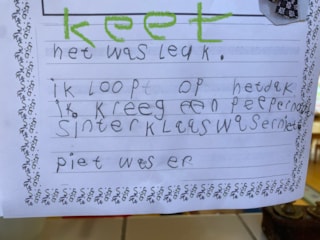 keet
het was leuk.
ik loopt op hetdak
ik kreeg een peeperno
Sinterklaas was erniet
piet was er